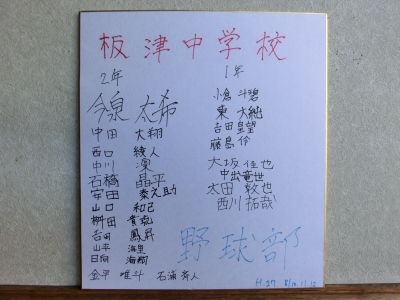 板津中学校
2年
今泉 太希
中田 大翔
西口 綾人
中川 凜
石橋 晶平
安田 泰之助
山口 和己
桝田 貴哉
吉田 鳳昇
山平 海里
日向 海翔
金平 唯斗
石浦 斉人
1年
小倉 斗碧
東 大純
吉田 皇望
藤島 伶
大坂 佳也
中出 竜世
太田 敦也
西川 拓哉
野球部
H.27